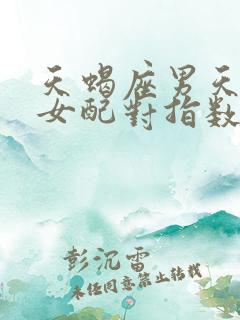 天蝎座男天
女配對指数
彭沉雷
未经同意禁止转载